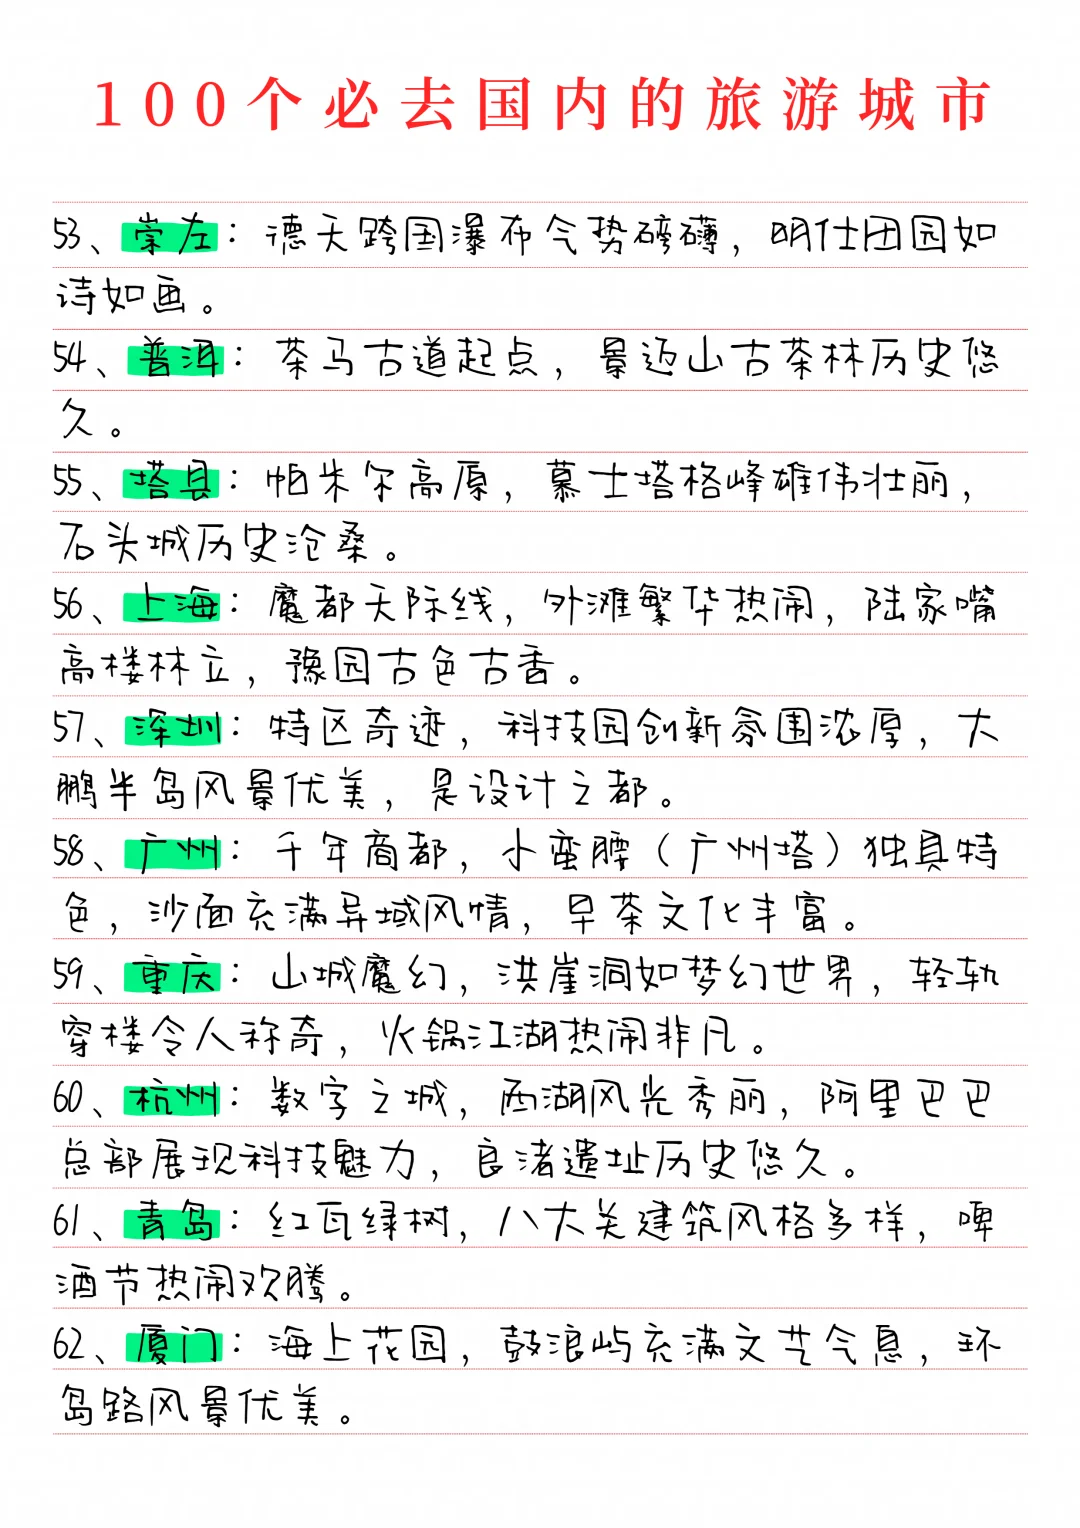 100个必去国内的旅游城市
53、崇左：德天跨国瀑布气势磅礴，明仕田园如
诗如画。
54、普洱：茶马古道起点，景迈山古茶林历史悠
久。
55、塔县：帕米尔高原，慕士塔格峰雄伟壮丽，
石头城历史沧桑。
56、上海：魔都天际线，外滩繁华热闹，陆家嘴
高楼林立，豫园古色古香。
57、深圳：特区奇迹，科技园创新氛围浓厚，大
鹏半岛风景优美，是设计之都。
58、广州：千年商都，小蛮腰（广州塔）独具特
色，沙面充满异域风情，早茶文化丰富。
59、重庆：山城魔幻，洪崖洞如梦幻世界，轻轨
穿楼令人称奇，火锅江湖热闹非凡。
60、杭州：数字之城，西湖风光秀丽，阿里巴巴
总部展现科技魅力，良渚遗址历史悠久。
61、青岛：红瓦绿树，八大关建筑风格多样，啤
酒节热闹欢腾。
62、厦门：海上花园，鼓浪屿充满文艺气息，环
岛路风景优美。